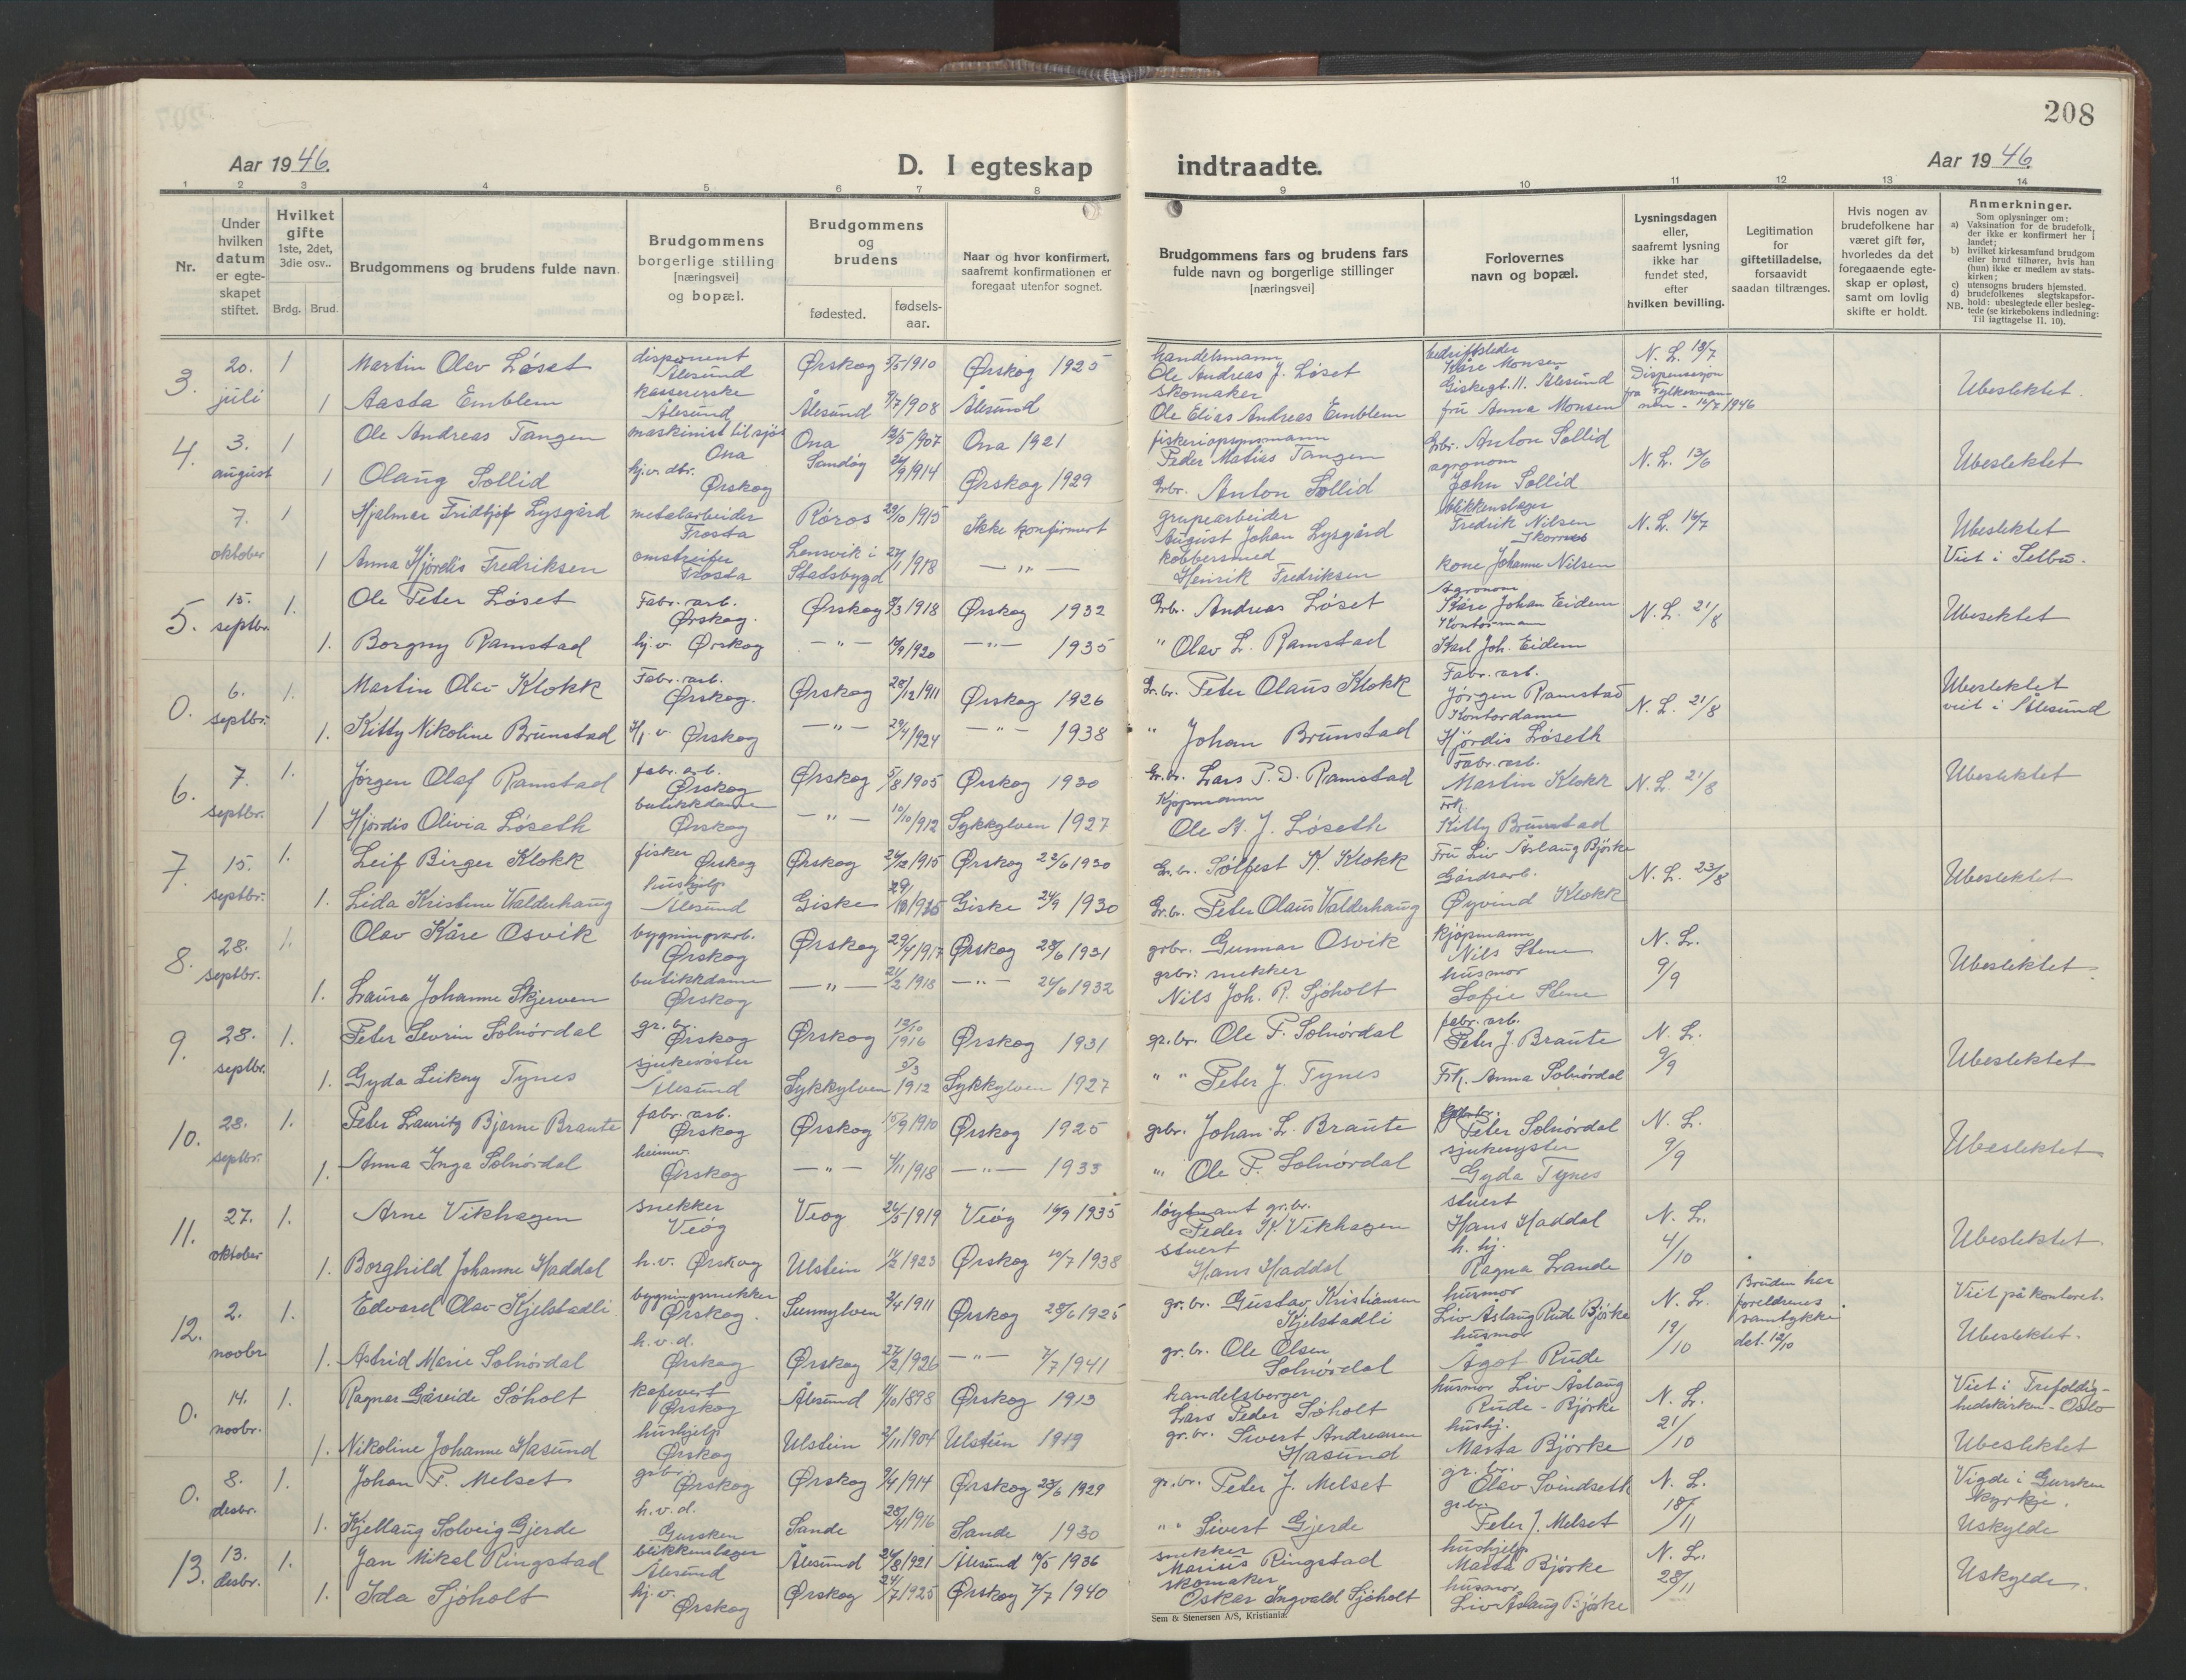 208
Aar 1946.
D. I egteskap indtraadte.
Aar 1946.
1 2 3 4 5 6 7 8 9 10 11 12 13 14
Nr.
Under hvilken datum er egteskapet stiftet.
Hvilket gifte 1ste, 2det, 3die osv..
Brdg. Brud.
Brudgommens og brudens fulde navn.
Brudgommens borgerlige stilling [næringsvei] og bopæl.
Brudgommens og brudens
fødested.
fødsels-aar.
Naar og hvor konfirmert, saafremt konfirmationen er foregaat utenfor sognet.
Brudgommens fars og brudens fars fulde navn og borgerlige stillinger [næringsvei]
Forlovernes navn og bopæl.
Lysningsdagen eller, saafremt lysning ikke har fundet sted, efter hvilken bevilling.
Legitimation for giftetilladelse, forsaavidt saadan tiltrænges.
Hvis nogen av brudefolkene har været gift før, hvorledes da det foregaaende egteskap er opløst, samt om lovlig skifte er holdt.
Anmerkninger.
Som oplysninger om:
a) Vaksination for de brudefolk, der ikke er konfirmert her i landet;
b) hvilket kirkesamfund brudgom eller brud tilhører, hvis han (hun) ikke er medlem av statskirken;
c) utensogns bruders hjemsted.
d) brudefolkenes slegtskapsforhold: ubeslegtede eller beslegtede (se kirkebokens indledning: Til Iagttagelse II. 10).
NB.
3. 20. juli 1 Martin Olav Løset disponent Ålesund Ørskog 5/5 1910 Ørskog 1925 handelsmann Ole Andreas J. Løset bedriftsleder Kåre Monsen Giskegt. 11. Ålesund N. L. 18/7 Dispensasjon fra Fylkesmannen - 12/7 1946 Ubeslektet.
1 Aasta Emblem kassererske Ålesund Ålesund 9/7 1908 Ålesund skomaker Ole Elias Andreas Emblem fru Anna Monsen
4. 3. august 1 Ole Andreas Tangen maskinist til sjøs Ona Ona Sandøy 12/5 1907 Ona 1921 fiskeriopsynsmann Peder Matias Tangen Grbr. Anton Sollid agronom N. L. 13/6 Ubeslektet
1 Olaug Sollid hj.v. dtr. Ørskog 24/9 1914 Ørskog 1929 Grbr. Anton Sollid John Sollid
7. oktober 1 Hjalmar Fridtjof Lysgård metalarbeider Frosta Røros 29/10 1915 Ikke konfirmert grupearbeider August Johan Lysgård blikkenslager Fredrik Nilsen Skornes N. L. 16/7 Ubeslektet
1 Anna Hjørdis Fredriksen omstreifer Frosta Lensvik i Stadsbygd 27/1 1918 — " — kobbersmed Henrik Fredriksen kone Johanne Nilsen Viet i Selbu.
5. 15. septbr. 1. Ole Peter Løset Fabr. arb. Ørskog. Ørskog 9/3 1918 Ørskog 1932 Grbr. Andreas Løset Agronom Kåre Johan Eidem N. L. 21/8 Ubeslektet
1. Borgny Ramstad hj. v. Ørskog — " — 19/9 1920 — " — 1935 " Olav L. Ramstad Kontormann Karl Joh. Eidem
0. 6. septbr. 1. Martin Olav Klokk Fabr. arb. Ørskog. Ørskog 28/12 1911 Ørskog 1926 Gr. br. Peter Olaus Klokk Fabr. arb. Jørgen Ramstad N. L. 21/8 Ubeslektet viet i Ålesund
1. Kitty Nikoline Brunstad Hj. v. Ørskog — " — 29/4 1924 — " — 1938 " Johan Brunstad Kontordame Hjørdis Løseth
6. 7. septbr. 1. Jørgen Olaf Ramstad fabr. arb. Ørskog Ørskog 5/8 1905 Ørskog 1920 Gr. br. Lars P. D. Ramstad Fabr. arb. Martin Klokk N. L. 21/8 Ubeslektet
1 Hjørdis Olivia Løseth butikkdame Ørskog — " — 10/10 1912 Sykkylven 1927 Kjøpmann Ole A. J. Løseth Frk. Kitty Brunstad
7. 15. septbr. 1. Leif Birger Klokk fisker Ørskog Ørskog 24/12 1915 Ørskog 22/6 1930 Gr. br. Solfest K. Klokk Fru Liv Åslaug Bjørke N. L. 23/8 Ubeslektet
1. Lida Kristine Valderhaug hushjelp Ålesund Giske Giske 24/9 1930 Gr. br. Peter Olaus Valderhaug Gårdsarb. Øyvind Klokk
8. 28. septbr. 1. Olav Kåre Osvik bygningsarb. Ørskog Ørskog 29/4 1917 Ørskog 28/6 1931 grbr. Gunnar Osvik kjøpmann Nils Stene N. L. 9/9 Ubeslektet.
1. Laura Johanne Skjerven butikkdame Ørskog — " — 21/2 1918 — " — 26/6 1932 grbr: snekker Nils Joh. R. Sjøholt husmor Sofie Stene
9. 28. septbr. 1. Peter Sevrin Solnørdal gr. b. Ørskog Ørskog 12/10 1916 Ørskog 1931 gr. br. Ole P. Solnørdal fabr. arb. Peter J. Braute N. L. 9/9 Ubeslektet
1. Gyda Leikny Tynes sjukesøster Ålesund Sykkylven 5/3 1912 Sykkylven 1927 " " Peter J. Tynes Frk. Anna Solnørdal
10. 28. septbr. 1. Peter Lauritz Bjarne Braute fabr. arb. Ørskog Ørskog 15/9 1910 Ørskog 1925 grbr. Johan L. Braute Peter Solnørdal N. L. 9/9 Ubeslektet
1. Anna Inga Solnørdal heimv. Ørskog — " — 4/11 1918 — " — 1933 " Ole P. Solnørdal sjukesyster Gyda Tynes
11. 27. oktober 1. Arne Vikhagen snekker Veøy Veøy 26/5 1919 Veøy 16/9 1935 løytnant gr. br. Peder K. Vikhagen stuert Hans Haddal N. L. 4/10 Ubeslektet.
1. Borghild Johanne Haddal h. v. Ørskog Ulstein 14/2 1923 Ørskog 10/7 1938 stuert Hans Haddal h. hj. Ragna Lande
12. 2. novbr 1. Edvard Olav Kjelstadli bygningssnekker Ørskog. Sunnylven 3/4 1911 Ørskog 28/6 1925 gr. br. Gustav Kristiansen Kjelstadli husmor Liv Åslaug Rude Bjørke N. L. 19/10 Bruden har foreldrenes samtykke dat. 12/10 Viet på kontoret.
1. Astrid Marie Solnørdal h. v. d. Ørskog Ørskog 27/2 1926 — " — 7/7 1941 gr. br. Ole Olsen Solnørdal husmor Ågot Rude Ubeslektet.
0. 14. novbr. 1. Ragnar Gåseide Søholt kafevert Ørskog Ålesund 11/10 1898 Ørskog 1913 handelsborger Lars Peder Søholt husmor Liv Åslaug Rude - Bjørke N. L. 21/10 Viet i Trefoldighedskirken - Oslo
1. Nikoline Johanne Hasund hushjelp Ørskog Ulstein 2/11 1904 Ulstein 1919 gr. br. Sivert Andreasen Hasund hushj. Marta Bjørke Ubeslektet
0. 8. desbr. 1. Johan P. Melset grbr. Ørskog Ørskog 9/4 1914 Ørskog 23/6 1929 gr. br. Peter J. Melset gr. br. Olav Svindseth N. L. 18/11 Vigde i Gursken kyrkje.
1. Kjellaug Solveig Gjerde h. v. d. Gursken Sande 28/1 1916 Sande 1930 " " Sivert Gjerde gr. br. Peter J. Melset Uskylde
13. 13. desbr. 1. Jan Mikal Ringstad blikkenslager Ålesund Ålesund 24/8 1921 Ålesund 10/5 1936 snekker Marius Ringstad hushjelp Marta Bjørke N. L. 28/11 Uskylde.
1. Ida Sjøholt hj. v. Ørskog Ørskog 24/7 1925 Ørskog 7/7 1940 skomaker Oskar Ingvald Sjøholt husmor Liv Åslaug Bjørke
Sem & Stenersen A/S, Kristiania.